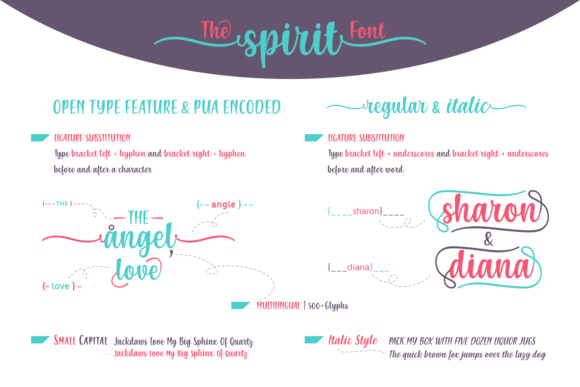 The spirit Font
OPEN TYPE FEATURE & PUA ENCODED
LIGATURE SUBSTITUTION
Type bracket left + hyphen and bracket right + hyphen
before and after a character
{--- THE }---
{-- angle } --
THE
angel,
love
{- love } -
regular & italic
LIGATURE SUBSTITUTION
Type bracket left + underscores and bracket right + underscores
before and after word
{____sharon}____
sharon
&
{___diana}___
diana
MULTILINGUAL | 500+Glyphs
Small Capital Jackdaws Love My Big Sphinx Of Quartz
Jackdaws Love My Big Sphinx Of Quartz
Italic Style PACK MY BOX WITH FIVE DOZEN LIQUOR JUGS
The quick brown fox jumps over the lazy dog